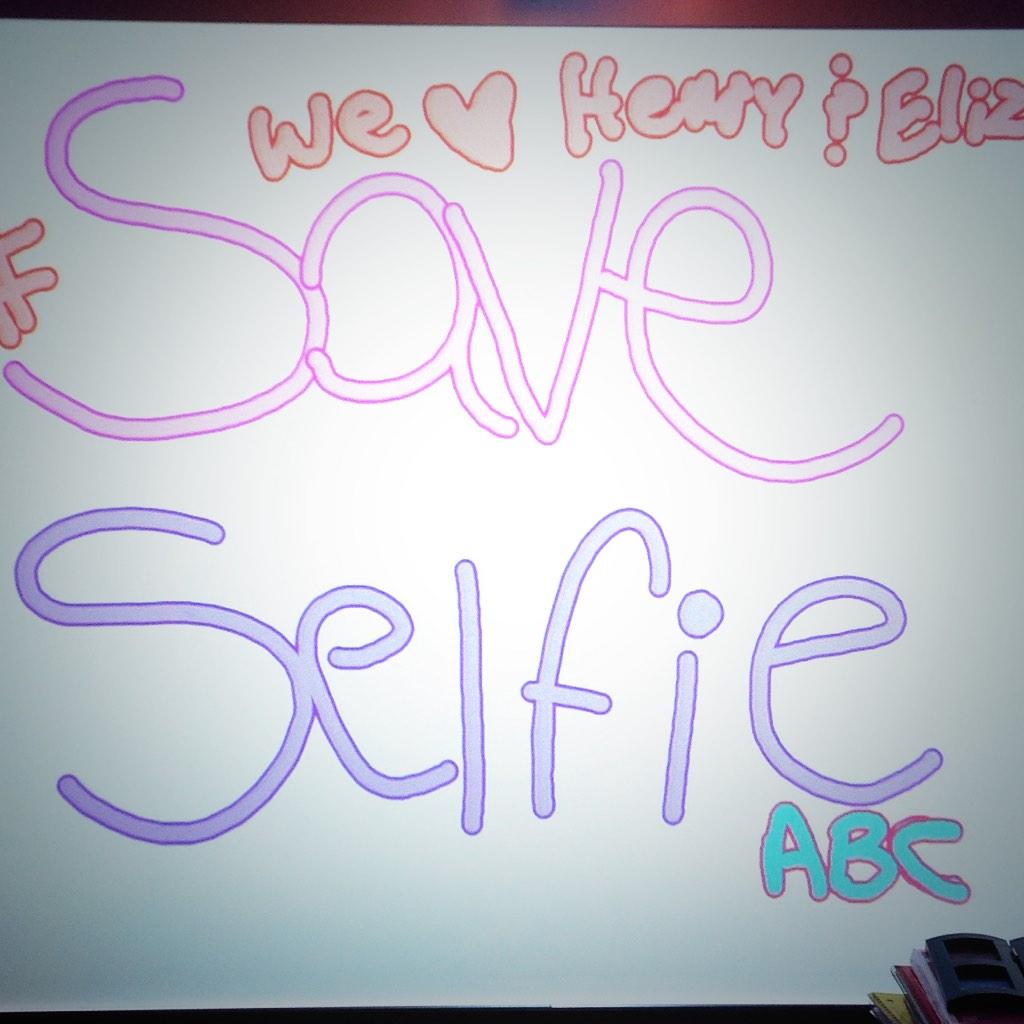 We ♥ Henry & Eliz
#Save
Selfie
ABC